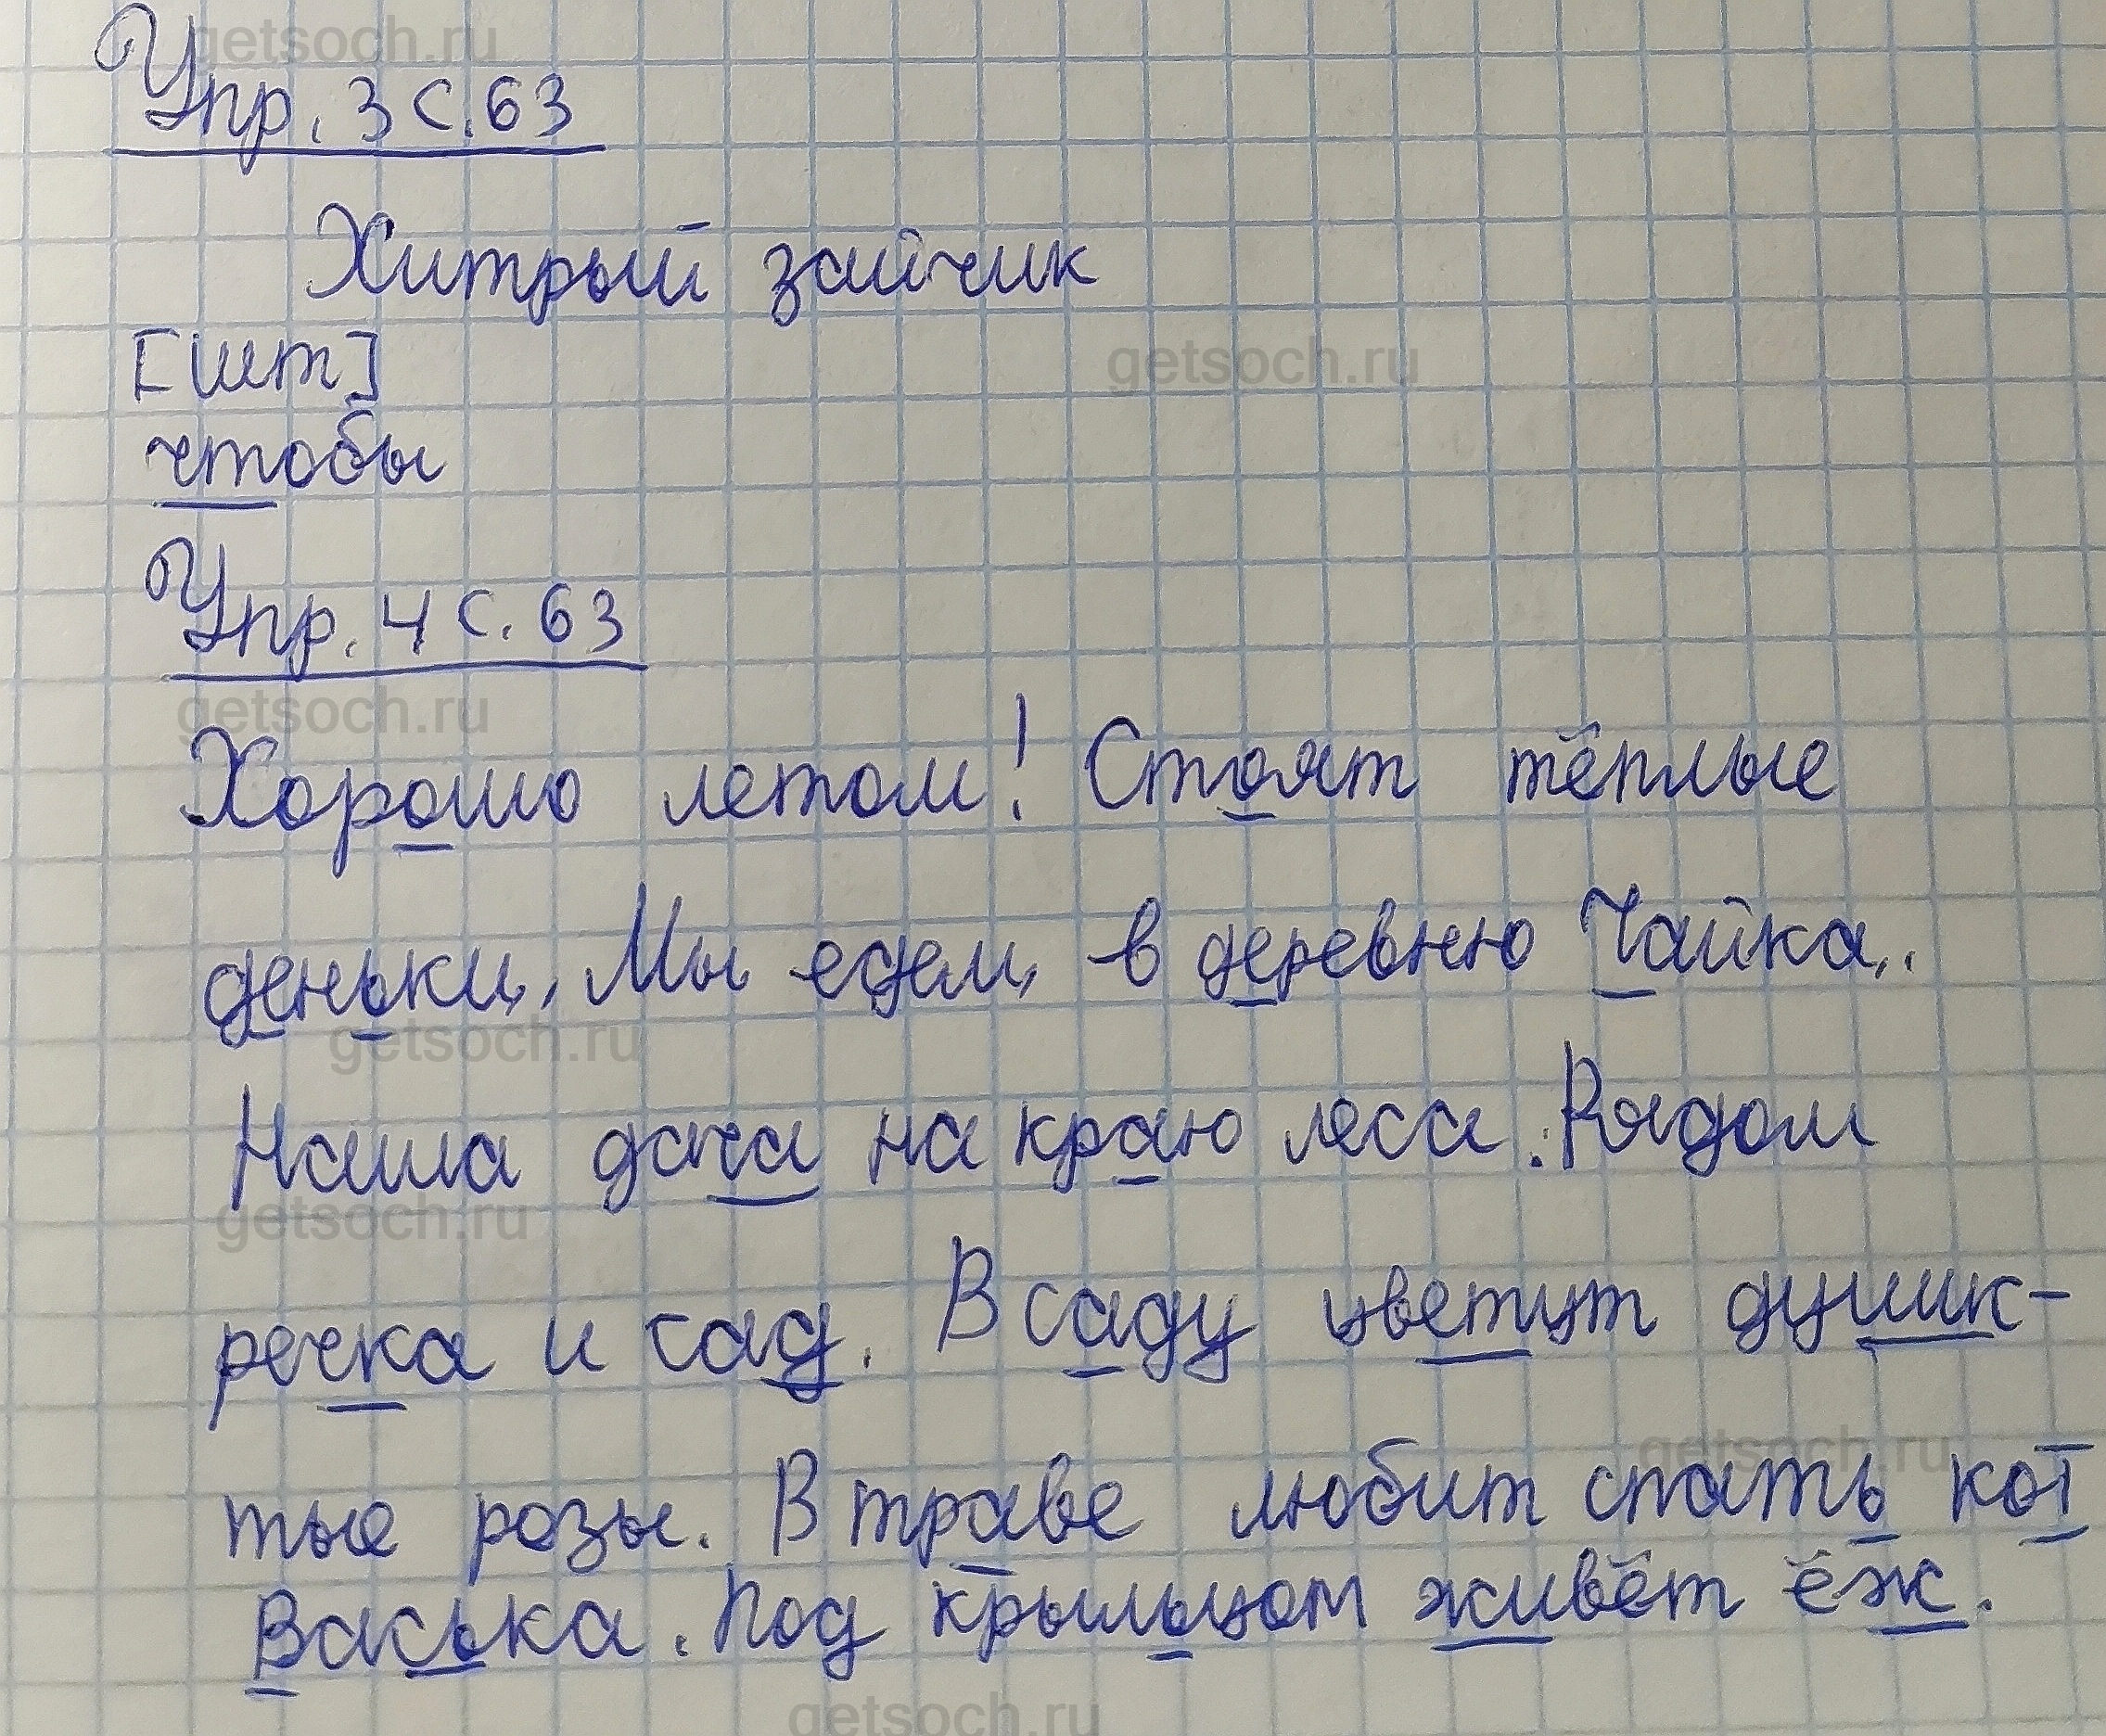 getsoch.ru
Упр. 3 с. 63
Хитрый зайчик
[шт]
getsoch.ru
чтобы
Упр. 4 с. 63
getsoch.ru
Хорошо летом! Стоят тёплые
деньки. Мы едем в деревню Чайка.
getsoch.ru
Наша дача на краю леса. Рядом
getsoch.ru
речка и сад. В саду цветут душис-
getsoch.ru
тые розы. В траве любит спать кот
Васька. Под крыльцом живёт ёж.
getsoch.ru